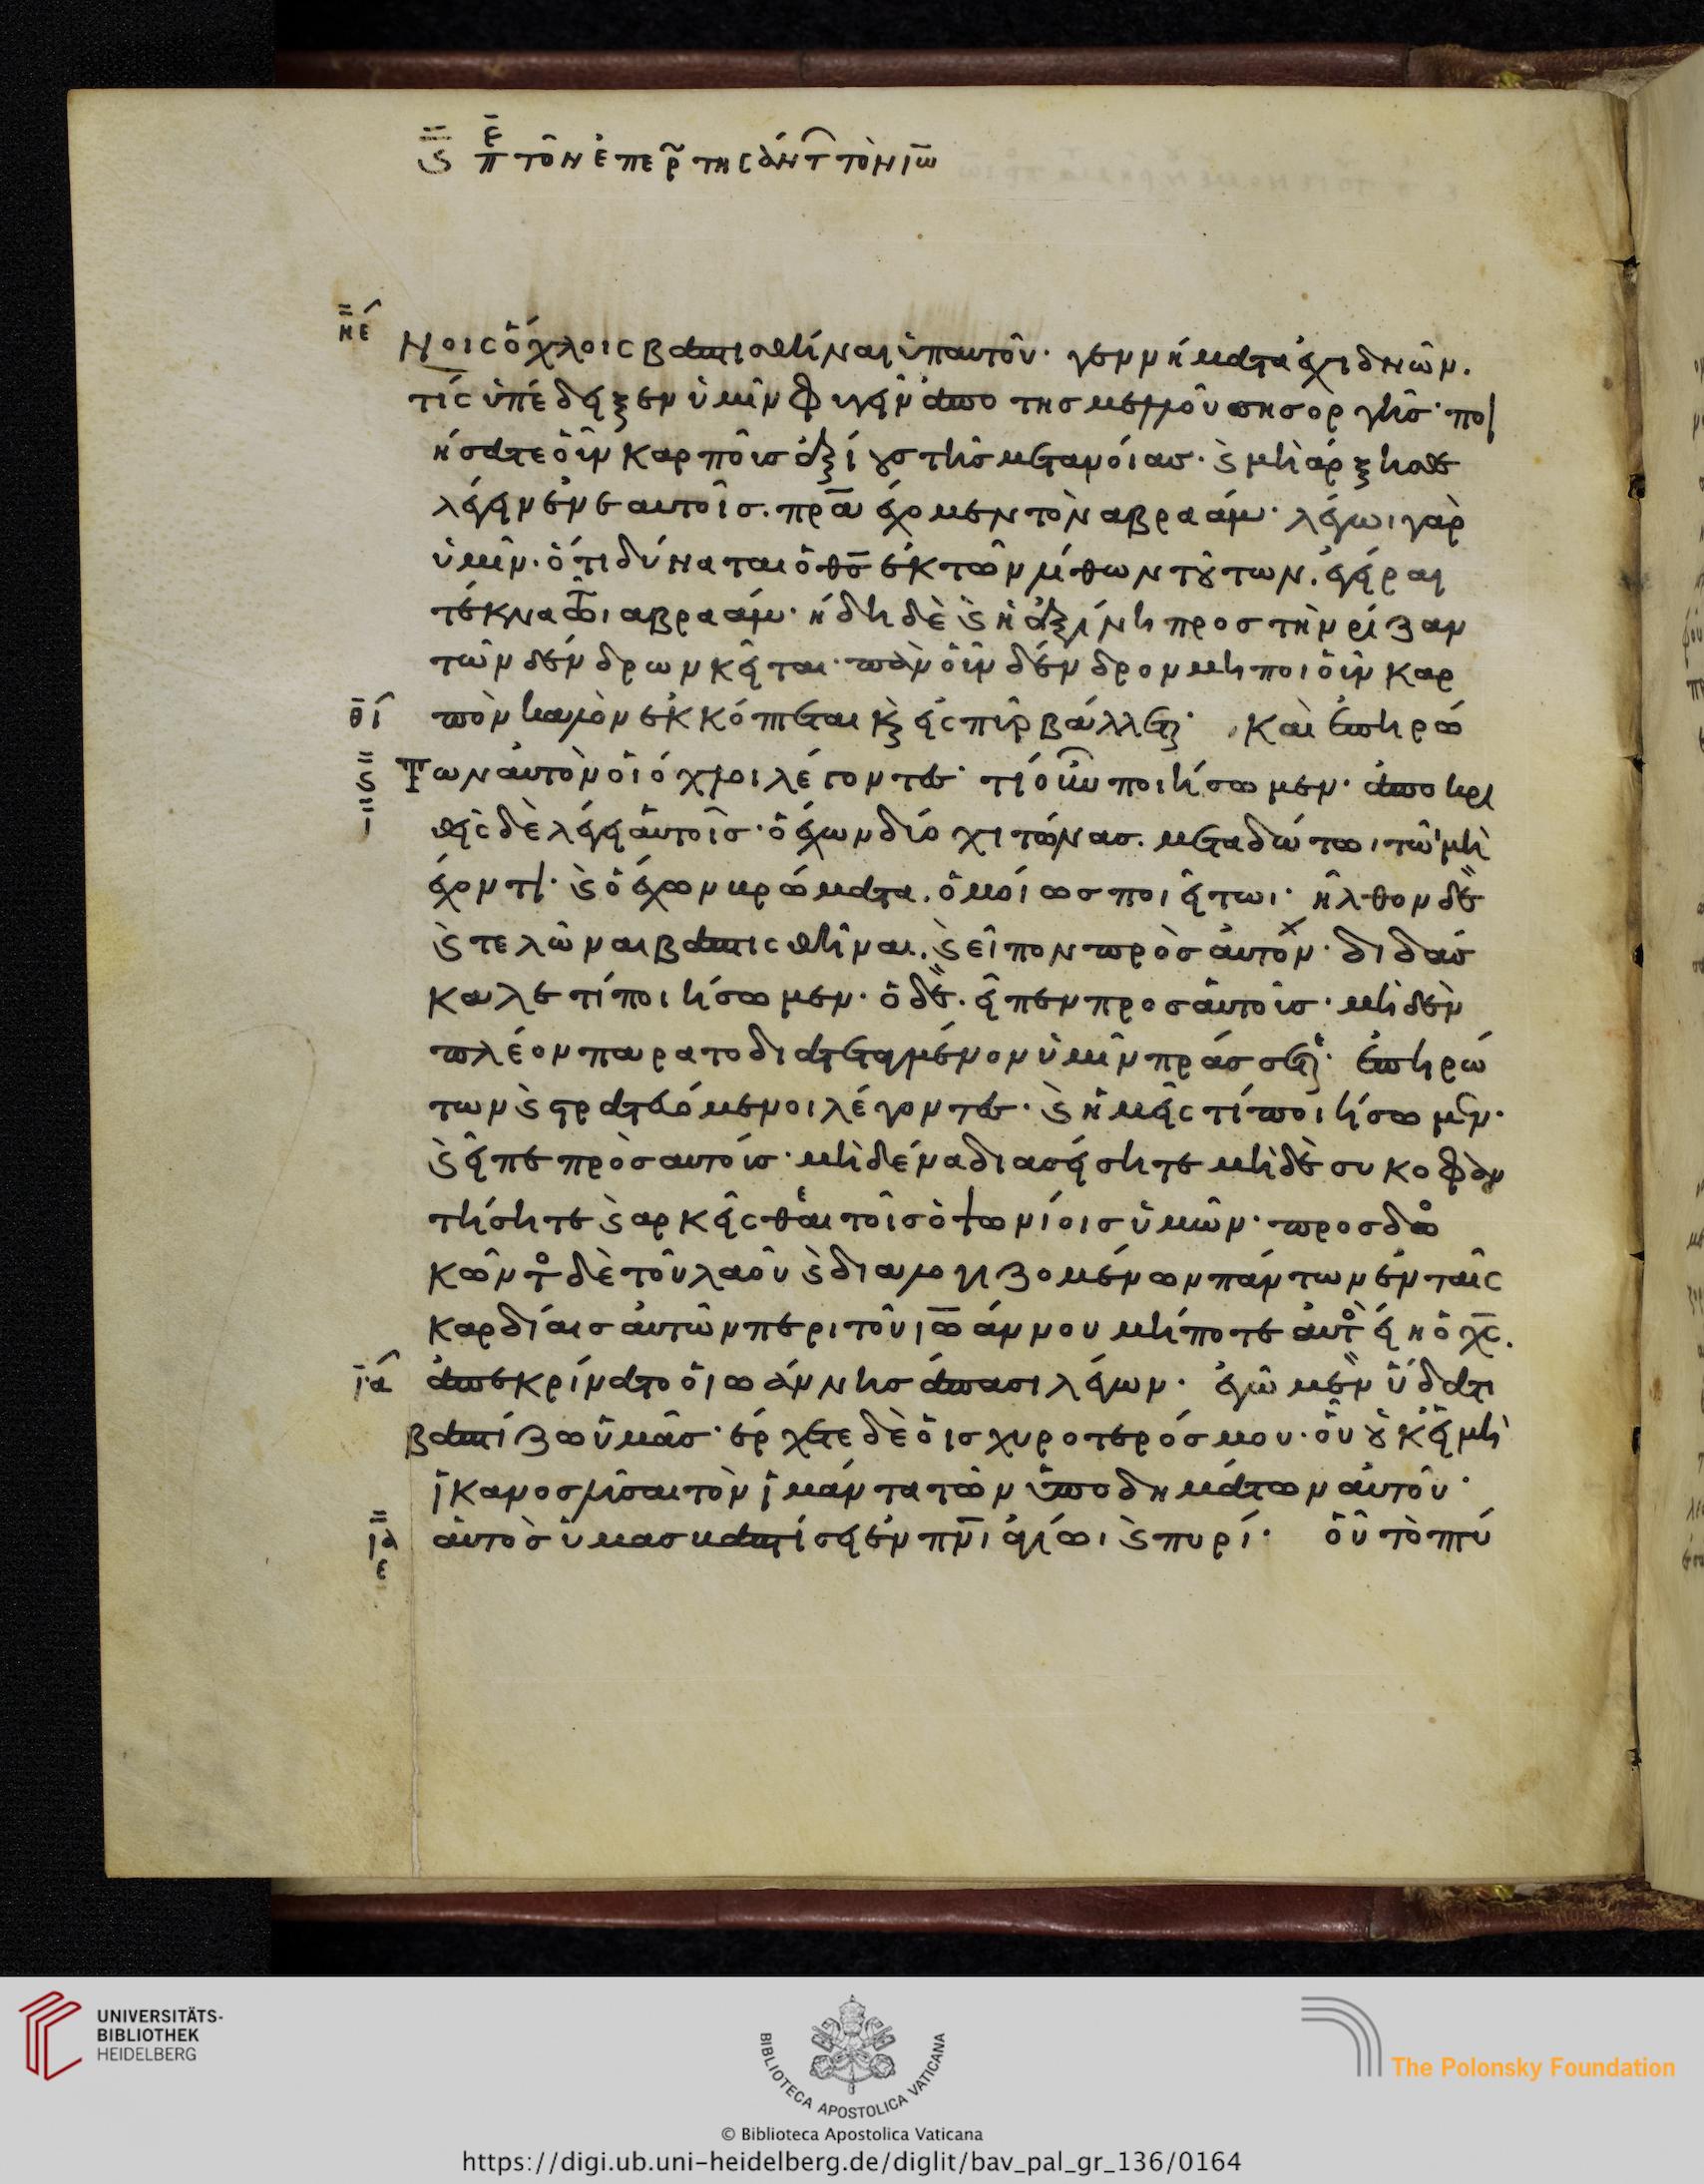 ϛ π̅ε̅ τῶν ἐπερ τησάντ τὸν ιω̅
η̅ε̅
νοις ὄχλοις βαπτισθῆναι ὑπ αυτοῦ· γεννήματα ἐχιδνῶν.
τίς ὑπέδειξεν ὑμῖν φυγεῖν ἀπο της μελλούσης ὀργῆς· ποι
ήσατε οὖν καρποὺς ἀξίους τῆς μετανοίας· καὶ μὴ ἄρξησθε
λέγειν ἐν εαυτοῖς. πρ̅α ἔχομεν τὸν αβραάμ· λέγωι γὰρ
ὑμῖν. ὅτι δύναται ὁ θς̅ ἐκ τῶν λίθων τούτων. ἐγεῖραι
τέκνα τῶι αβραάμ· ἤδη δὲ καὶ ἡ ἀξίνη προς τὴν ρίζαν
τῶν δένδρων κεῖται· πᾶν οὖν δένδρον μη ποιοῦν καρ
θ̅ι̅
πὸν καλὸν ἐκκόπτεται κ εἰς πῦρ βάλλεται· Καὶ ἐπηρώ
ϛ
ι
Των αὐτὸν οἱ ὄχλοι λέγοντες· τί οὖν ποιήσωμεν· ἀποκρι
θεὶς δὲ λέγει αὐτοῖς· ὁ ἔχων δύο χιτῶνας. μεταδώτωι τῶ μὴ
ἔχοντι· καὶ ὁ ἔχων βρώματα. ὁμοίως ποιείτωι· ἦλθον δὲ
καὶ τελῶναι βαπτισθῆναι. καὶ εἶπον πρὸς αὐτόν· διδάσ
καλε τί ποιήσωμεν· ὁ δὲ. εἶπεν προς αὐτοὺς· μὴδὲν
πλέον παρα το διατεταγμένον ὑμῖν πράσσεται· ἐπηρώ
των καὶ στρατευόμενοι λέγοντες· καὶ ἡμεῖς τί ποιήσωμεν·
καὶ εἶπε πρὸς αυτούς· μὴδένα διασείσητε μὴδὲ συκοφαν
τήσητε καὶ αρκεῖσθαι τοῖς ὀψωνίοις ὑμῶν· προσδο
κῶντο δὲ τοῦ λαοῦ καὶ διαλογιζομένων πάντων ἐν ταῖς
καρδίαις αὐτῶν περι τοῦ ιωάννου μήποτε αὐτὸ εἴη ὁ χς̅.
ι̅α̅
ἀπεκρίνατο ὁ ιωάννης ἅπασι λέγων. ἐγῶ μὲν ὕδατι
βαπτίζω ὑμᾶς· έρχεται δὲ ὁ ισχυροτερός μου· οὗ οὐκ εἰμὴ
ἱκανος λῦσαι τὸν ἱμάντα τῶν ὑποδημάτων αὐτοῦ·
ι̅α̅
ε
αὐτὸς ὑμας βαπτίσει ἐν πν̅ι ἁγίωι καὶ πυρί· οὗ τὸ πτύ
UNIVERSITÄTS-
BIBLIOTHEK
HEIDELBERG
BIBLIOTECA APOSTOLICA VATICANA
The Polonsky Foundation
© Biblioteca Apostolica Vaticana
https://digi.ub.uni-heidelberg.de/diglit/bav_pal_gr_136/0164